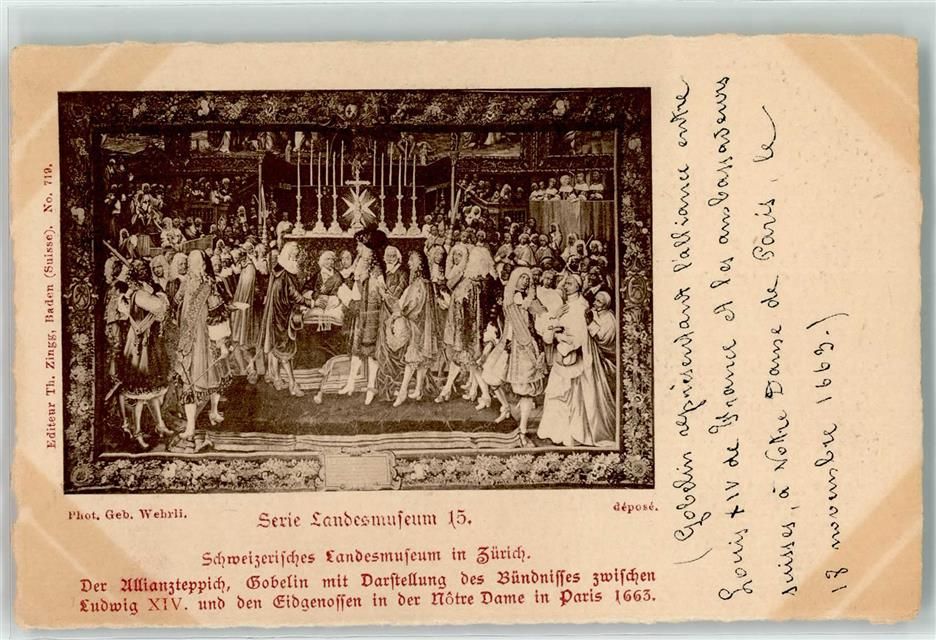 Editeur Th. Zingg, Baden (Suisse). No. 719.
Phot. Geb. Wehrli.
déposé.
Serie Landesmuseum 15.
Schweizerisches Landesmuseum in Zürich.
Der Allianzteppich, Gobelin mit Darstellung des Bündnisses zwischen
Ludwig XIV. und den Eidgenossen in der Nôtre Dame in Paris 1663.
(Gobelin représentant l'alliance entre
Louis XIV de France et les ambassadeurs
suisses, à Notre Dame de Paris, le
17 novembre 1663.)